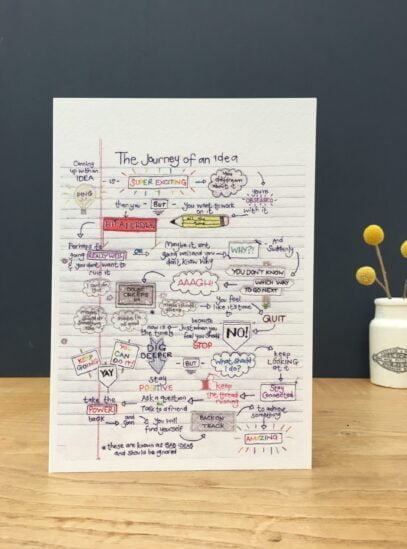 The Journey of an Idea
Coming
up with an
IDEA
PING
is
SUPER EXCITING
you
daydream
about it
you're
OBSESSED
with it
then you
BUT
you want to work
on it
HIT A HURDLE
Perhaps it's
going REALLY WELL
if you don't want to
ruin it
Maybe it isn't
going well and you
don't know
WHY?!
And
Suddenly
YOU DON'T KNOW
WHICH WAY
TO GO NEXT
AAAGH!
DOUBT
CREEPS
IN
You feel
like it's time
to
QUIT
because
just when
you feel you should
STOP
NO!
now is
the time to
DIG
DEEPER
KEEP
GOING
YOU
CAN
DO IT!
YAY
BUT
what should
I do?
keep
LOOKING
at it
Stay
POSITIVE
keep
the thread
running
Stay
Connected
take the
POWER
back
Ask a question
Talk to a friend
to achieve
something
and
soon
you will
find yourself
BACK ON
TRACK
AMAZING
* these are known as BAD IDEAS
and should be ignored